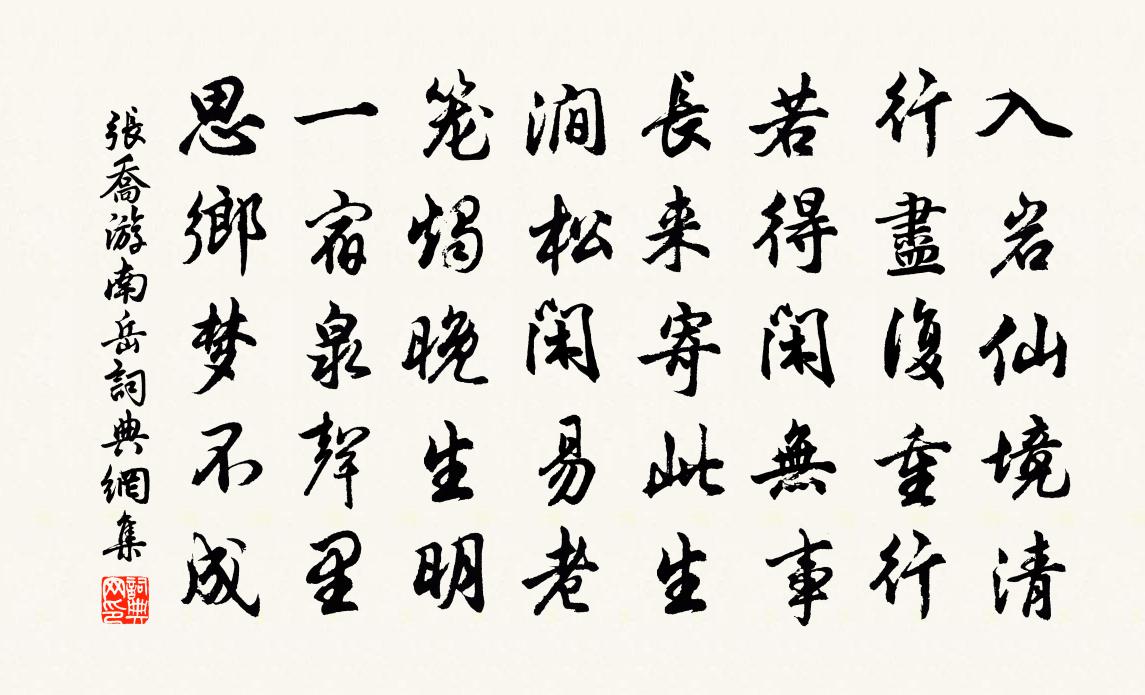 入岩仙境清
行盡復重行
若得閑無事
長来寄此生
澗松閑易老
笼燭晚生明
一宿泉聲里
思鄉梦不成
張喬游南岳詞典網集
詞典网印